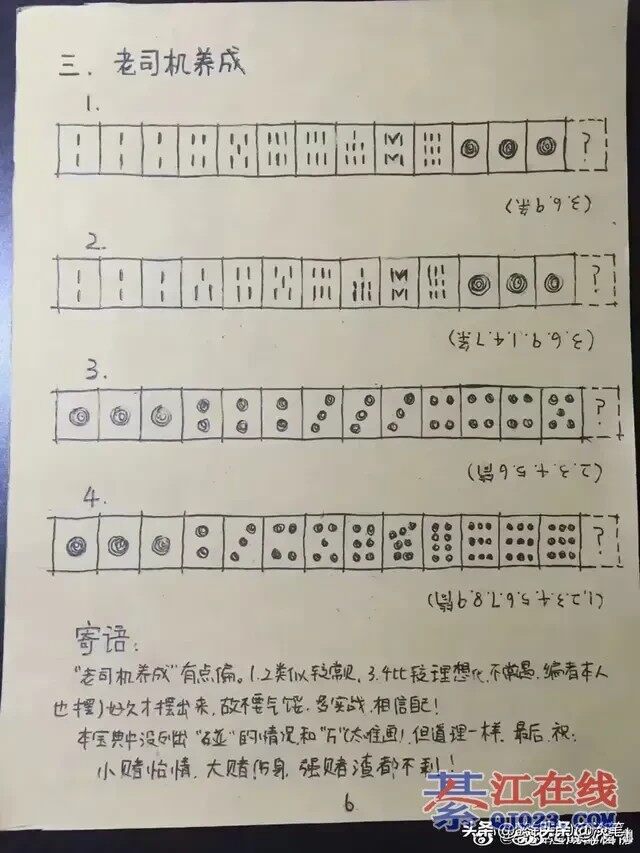 三. 老司机养成
1.
?
(3.6.9条)
2.
?
(3.6.9.1.4.7条)
3.
?
(2.3.4.5.6筒)
4.
?
(1.2.3.4.5.6.7.8.9筒)
寄语:
"老司机养成"有点偏。1.2类似较常见, 3.4比较理想化, 不常遇. 编者本人
也摆了好久才摆出来, 故不要气馁. 多实战, 相信自己!
本宝典中没列出"碰"的情况, 和"万"(太难画), 但道理一样, 最后, 祝:
小赌怡情, 大赌伤身, 强赌渣都不剩!
6
綦江在线
QJ023.COM
头条